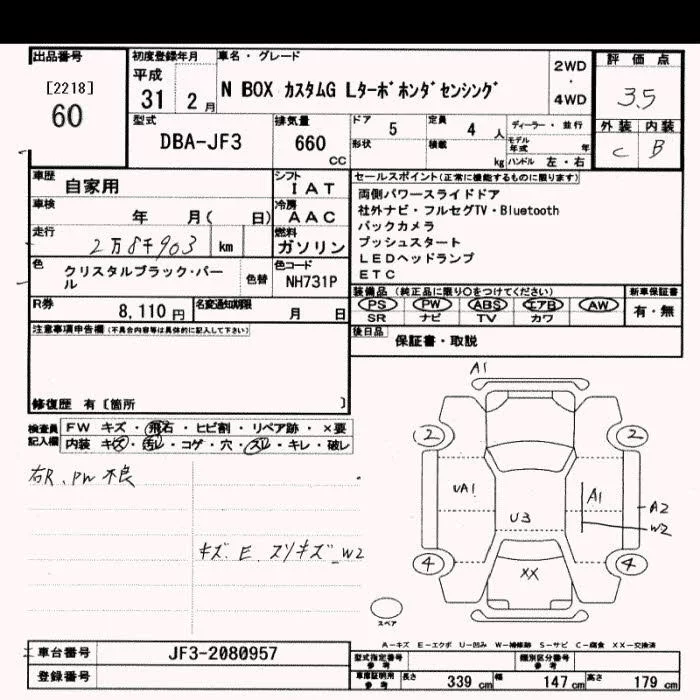 出品番号
[2218]
60
初度登録年月
平成
31 2 月
車名・グレード
N BOX カスタムG Lターボ ホンダセンシング
2WD
・
4WD
評価点
3.5
外装 内装
C B
型式
DBA-JF3
排気量
660
cc
ドア 5
定員 4 人
形状
積載 kg
ディーラー・並行
モデル年式 年
ハンドル 左・右
車歴 自家用
シフト
IAT
車検 年 月( 日)
冷房
AAC
走行 2万8千903 km
燃料
ガソリン
色 クリスタルブラック・パール
色替
色コード
NH731P
R券 8,110 円
名変通知期限 月 日
セールスポイント(正常に機能するものに限ります)
両側パワースライドドア
社外ナビ・フルセグTV・Bluetooth
バックカメラ
プッシュスタート
LEDヘッドランプ
ETC
装備品 (純正品に限り〇をつけてください)
PS PW ABS エアB AW
SR ナビ TV カワ
新車保証書
有・無
後日品
保証書・取説
注意事項申告欄(不具合内容等は具体的に記入して下さい)
修復歴 有〔箇所 〕
検査員
記入欄
FW キズ・飛石・ヒビ割・リペア跡・×要
内装 キズ・汚レ・コゲ・穴・スレ・キレ・破レ
右R、PW 不良
キズ E スリキズ W2
A1
2 2
UA1
A1
A2
W2
U3
4 4
XX
スペア
A-キズ E-エクボ U-凹み W-補修跡 S-サビ C-腐食 XX-交換済
車台番号 JF3-2080957
登録番号
型式指定番号
参考
類別区分番号
参考
車庫証明用
参考
長さ 339 cm 幅 147 cm 高さ 179 cm